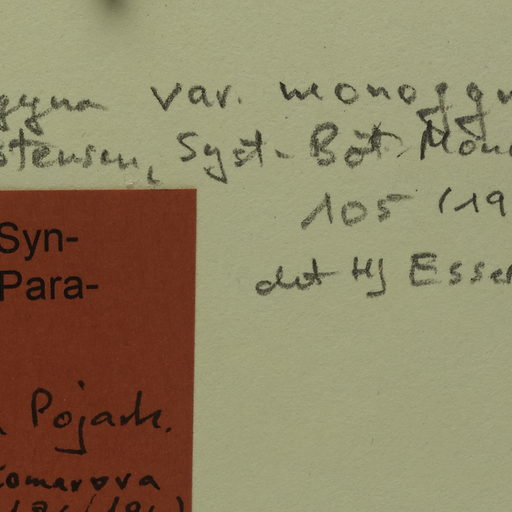 gyna var. monogyn
stensen, Syst. Bot. Mon
105 (19
det HJ Esser
Syn-
Para-
Pojark.
Komarova